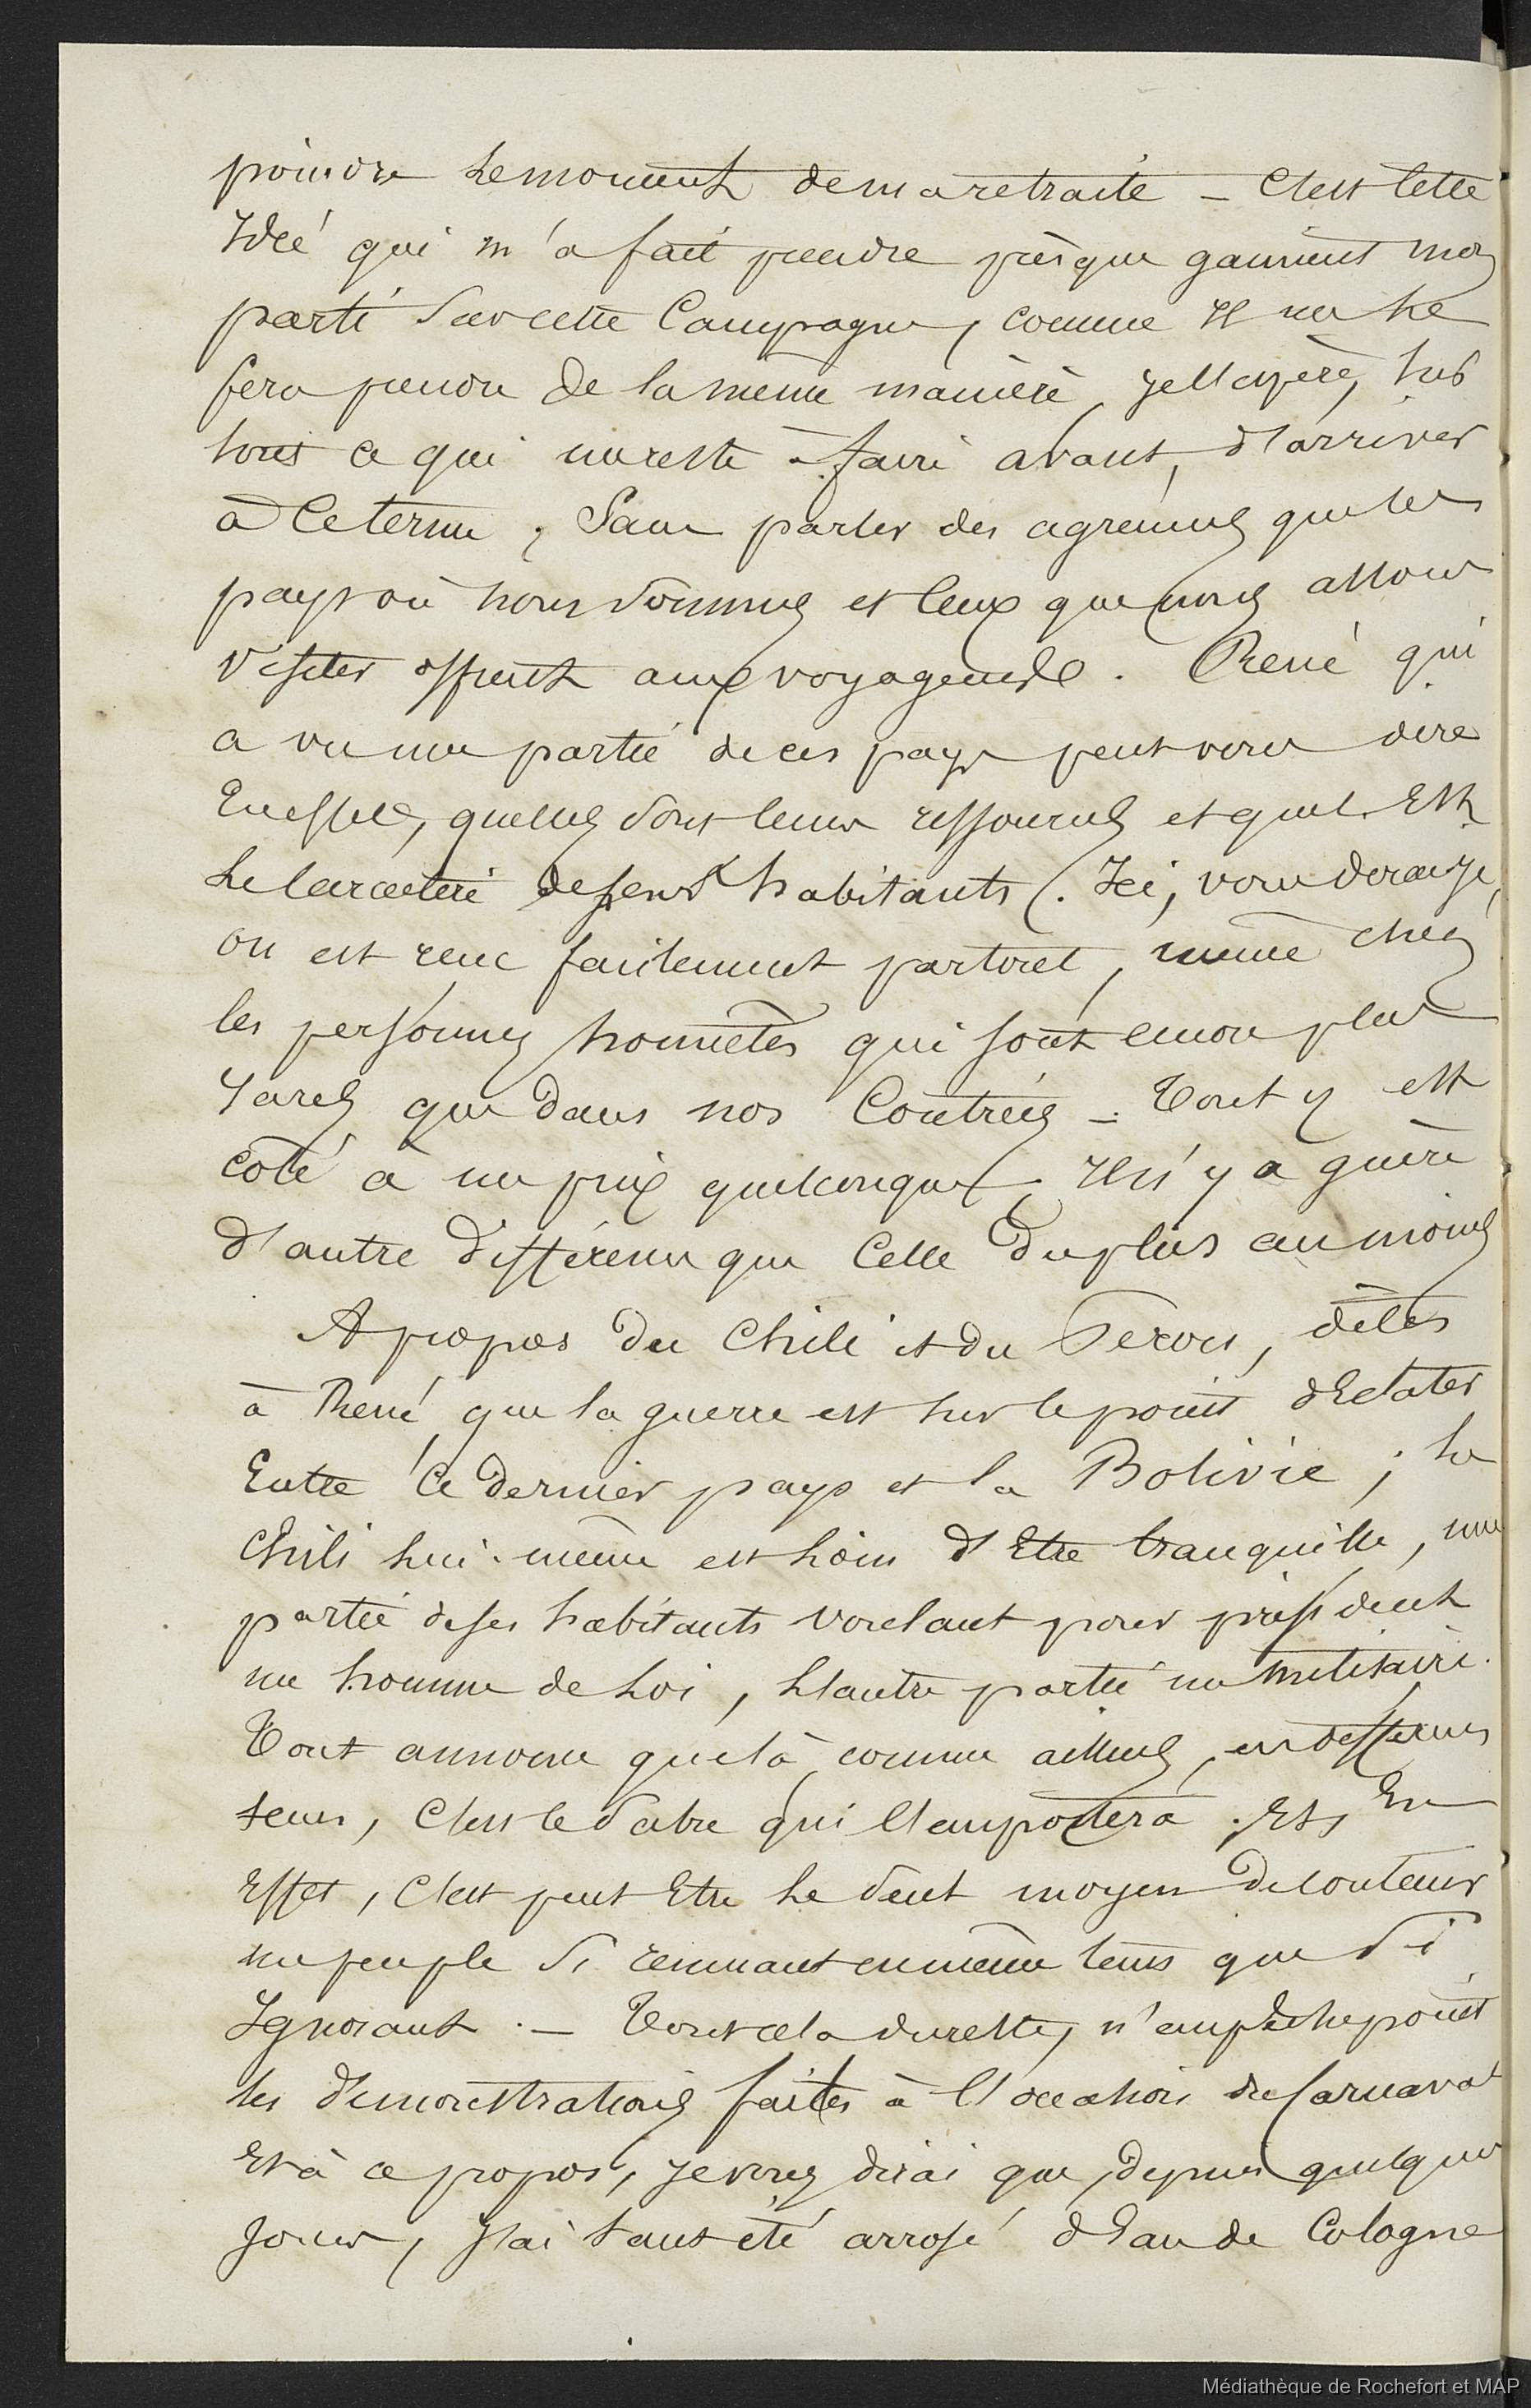 poindre le moment de ma retraite – C'est cette
Idée qui m'a fait prendre presque gaiment mon
parti sur cette Campagne, comme Il me le
fera prendre de la même manière, je l'espère, sur
tout ce qui me reste à faire avant, d'arriver
à Ce terme, Sans parler des agréments que les
pays où nous sommes et Ceux que nous allons
visiter offrent aux voyageurs. René qui
a vu une partie de ces pays peut vous dire
En effet, quelles sont leurs ressources et quel Est
Le Caractère de ses habitants. Ici, vous dirai-je,
on est reçu facilement partout, même chez
les personnes honnêtes qui sont encore plus
rares que dans nos Contrées – Tout y est
côté à un prix quelconque, Il n'y a guère
d'autre différence que Celle du plus au moins
A propos du Chili et du Pérou, dites
à René que la guerre est sur le point d'Eclater
Entre Ce dernier pays et la Bolivie ; le
Chili lui-même est loin d'Etre tranquille, une
partie de ses habitants voulant pour président
un homme de Loi, L'autre partie un militaire.
Tout annonce que là comme ailleurs,
C'est le sabre qui l'emportera. Et, En
Effet, C'est peut Etre le seul moyen de contenir
un peuple si remuant en même tems que si
Ignorant. – Tout cela du reste, n'empêche point
les démonstrations faites à l'occasion du Carnaval
Et à ce propos, je vous dirai que, depuis quelques
jours, j'ai tant été arrosé d'Eau de Cologne
Médiathèque de Rochefort et MAP